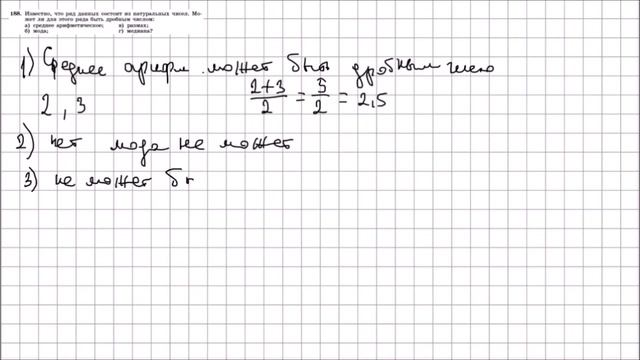 188. Известно, что ряд данных состоит из натуральных чисел. Мо-
жет ли для этого ряда быть дробным числом:
а) среднее арифметическое; в) размах;
б) мода; г) медиана?
1) Среднее арифм. может быть дробным число
2, 3 2+3/2 = 5/2 = 2,5
2) нет мода не может
3) не может б